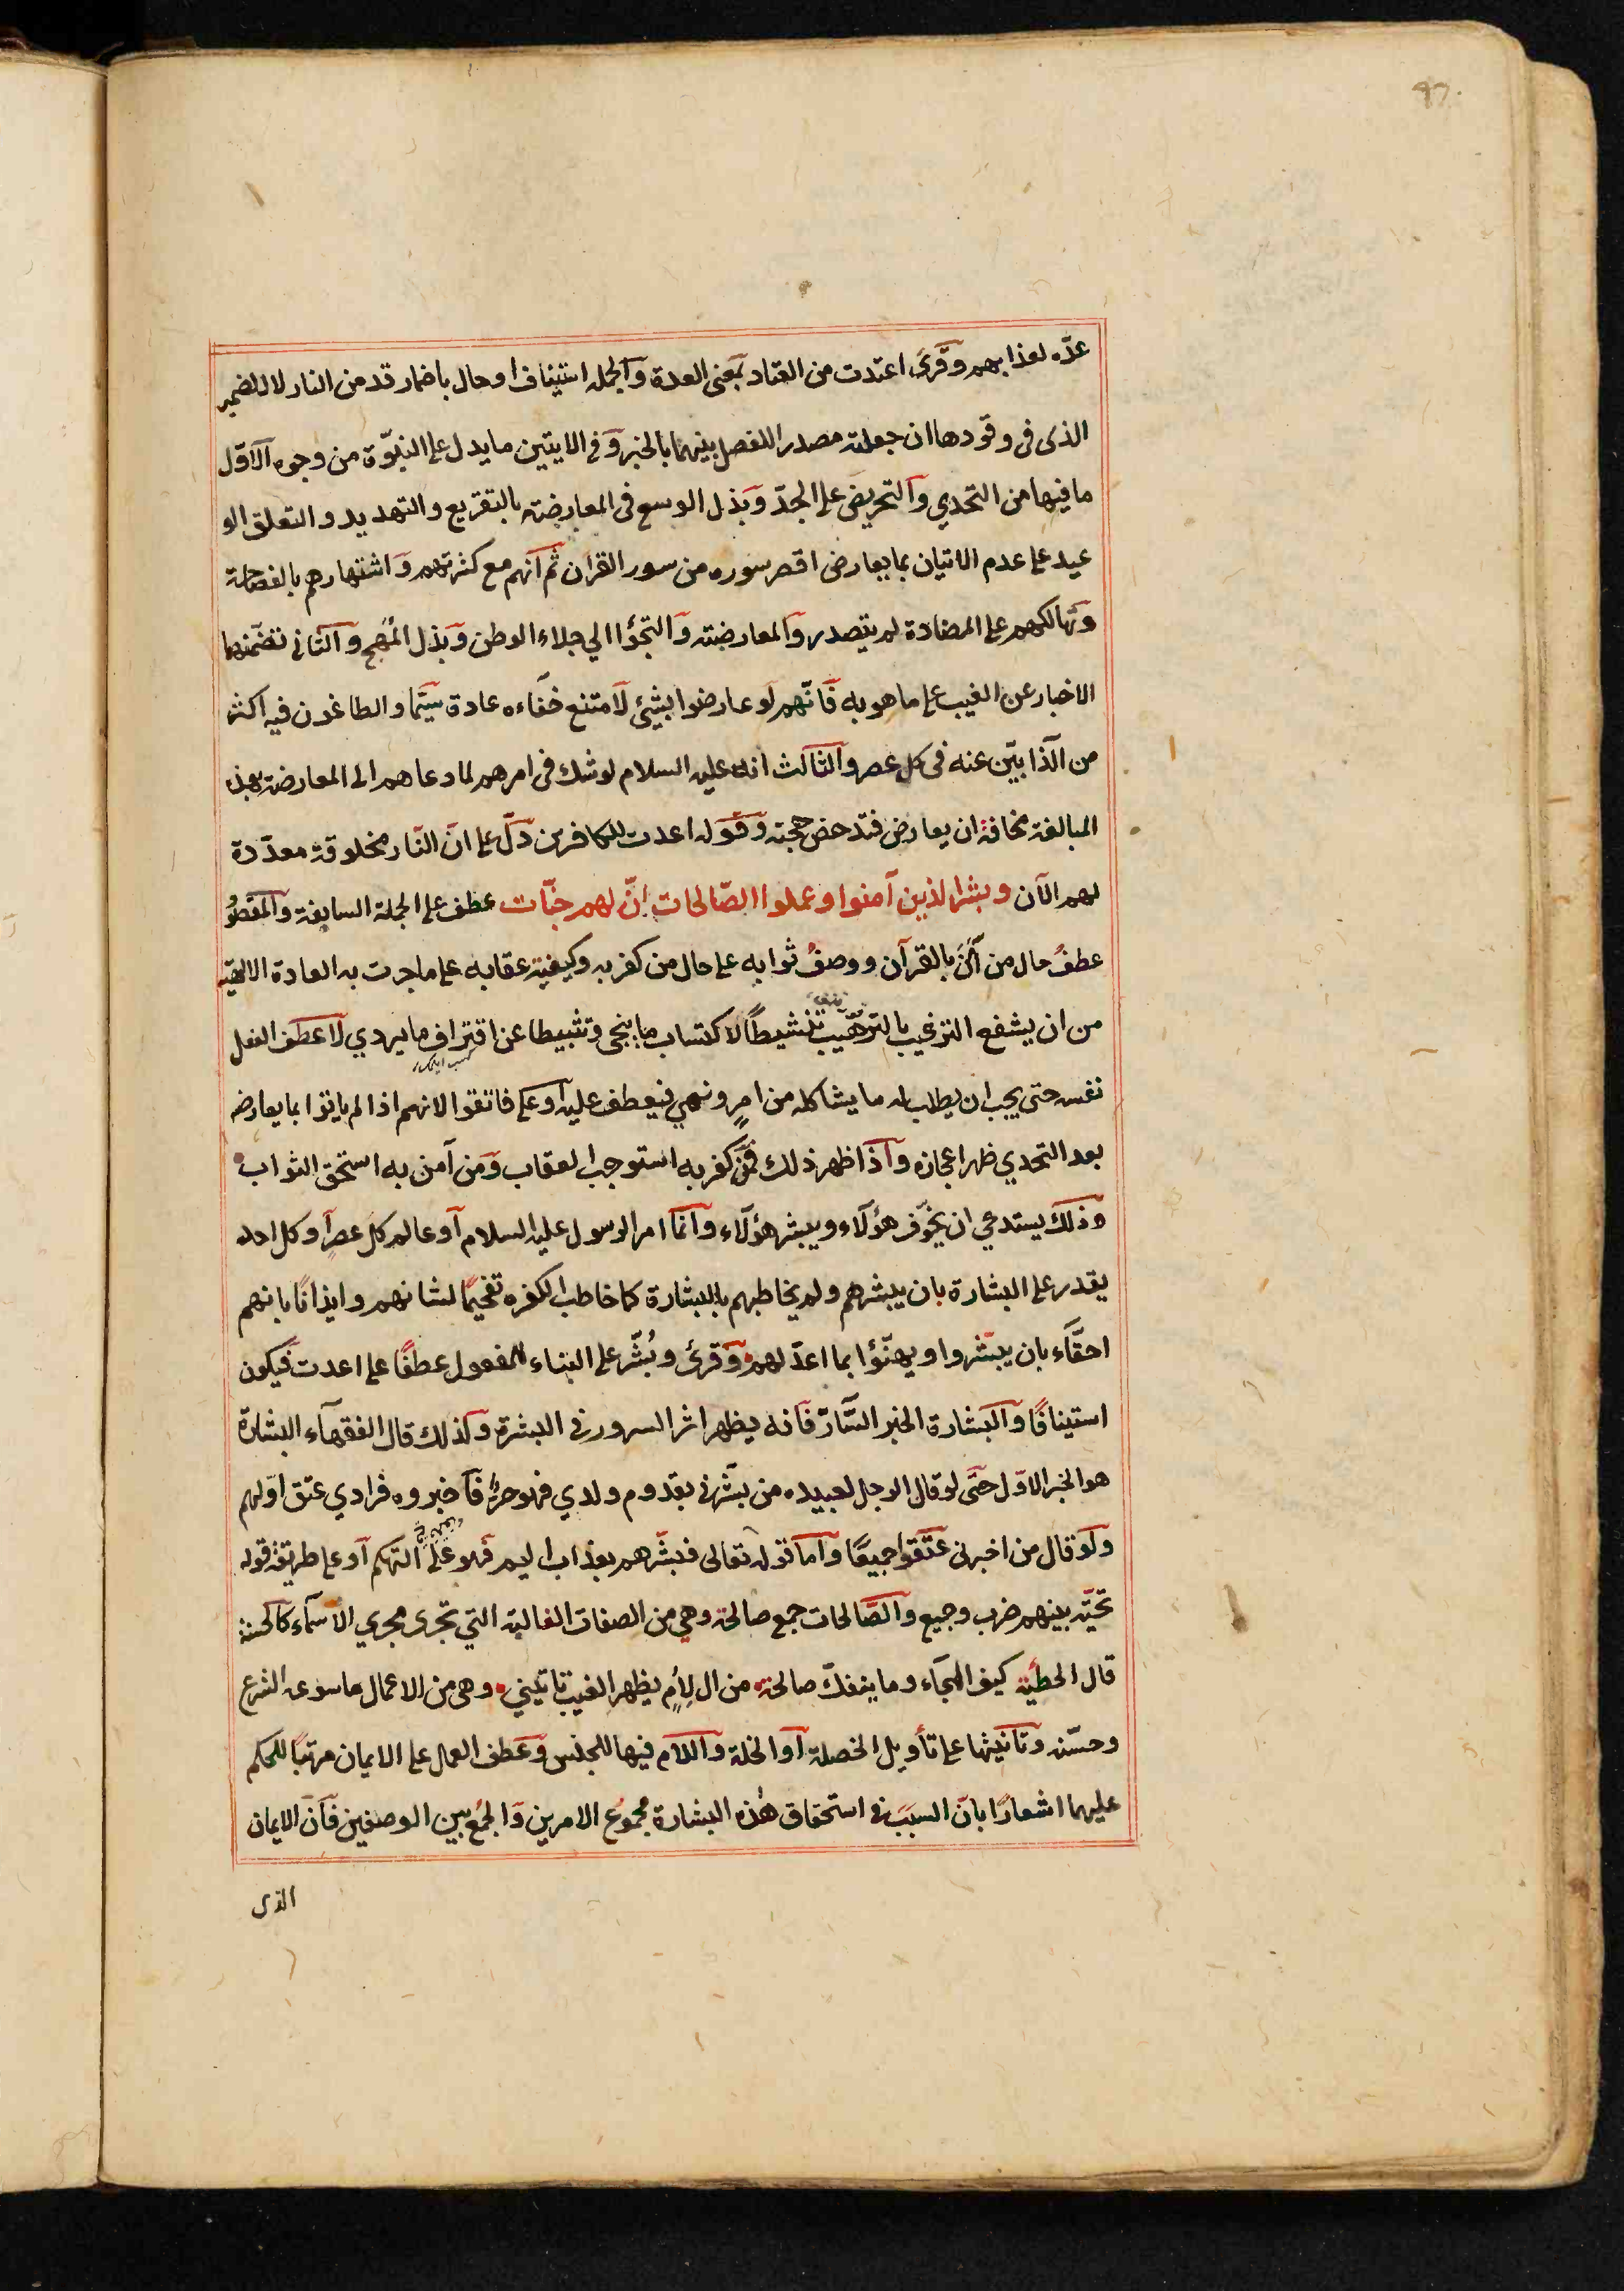 عدّه لعذابهم وقرئ اعتدت من العتاد بمعنى العدة والجمله استيناف او حال باضمار قد من النار لا للضمير
الذى فى وقودها ان جعلته مصدرا للفصل بينهما بالخبر وفى الايتين ما يدل على النبوّة من وجوه الاوّل
ما فيها من التحدي والتحريض على الجدّ وبذل الوسع فى المعارضة بالتقريع والتهديد والتعلق الو
عيد على عدم الاتيان بما يعارض اقصر سوره من سور القرآن ثم انهم مع كثرتهم واشتهارهم بالفصاحة
وتهالكهم على المضادة لم يتصدروا المعارضته والتجؤا الي جلاء الوطن وبذل المُهج والثانى تضمّنهما
الاخبار عن الغيب على ما هو به فانّهم لو عارضوا بشيئ لامتنع خفاءه عادة سيّما والطاعنون فيه اكثر
من الذابّين عنه فى كل عصر والثالث انه عليه السلام لو شك فى امرهم لما دعاهم الى المعارضة بهذه
المبالغة مخافة ان يعارض فتدحض حجته وقوله اعدت للكافرين دلّ على انّ النّار مخلوقة معدّدة
لهم الآن وبشر الذين آمنوا وعملوا الصّالحات انّ لهم جنّات عطف على الجملة السابقة والمقصُو
عطفُ حال من آمَنَ بالقرآن ووصفُ ثوابه على حال من كفر به وكيفية عقابه على ما جرت به العادة الالهية
من ان يشفع الترغيب بالترهيب تنشيطًا لاكتساب ما ينجى وتثبيطا عن اقتراف ما يردي لا عطف الفعل
نفسه حتى يجب ان يطلب له ما يشاكله من امرٍ ونهيٍ فيعطف عليه او على فاتقوا لانهم اذا لم يأتوا بما يعارضه
بعد التحدي ظهر اعجازه واذا ظهر ذلك فمن كفر به استوجب العقاب ومَن آمن به استحق الثواب
وذلك يستدعي ان يخوّف هؤلاء ويبشر هؤلاء وانما امر الرسول عليه السلام او عالم كل عصرٍ او كل احد
يقدر على البشارة بان يبشرهم ولم يخاطبهم بالبشارة كما خاطب الكفره تفخيمًا لشانهم وايذانًا بانهم
احقّاء بان يبشّروا ويهنّؤا بما اعدّ لهم وقرئ وبُشّر على البناء للمفعول عطفًا على اعدت فيكون
استينافًا والبشارة الخبر السّارّ فانه يظهر اثر السرور فى البشرة ولذلك قال الفقهآء البشارة
هو الخبر الاوّل حتّى لو قال الرجل لعبيده من بشّرنى بقدوم ولدي فهو حرٌّ فاخبروه فرادي عتق اوّلهم
ولو قال من اخبرنى عتقوا جميعًا واما قوله تعالى فبشّرهم بعذاب اليم فهو على التهكم او على طريقة قوله
تحيّة بينهم ضرب وجيع والصّالحات جمع صالحة وهي من الصفات الغالبة التي تجرى مجري الاسمآء كالحسنة
قال الحطيئة كيف الهجآء وما ينفكّ صالحة من ال لِأْمٍ بظهر الغيب تاتيني وهى من الاعمال ما سوغه الشرع
وحسّنه وتانيثها على تأويل الخصلة او الخلة واللام فيها للجنس وعطف العمل على الايمان مرتبًا للحكم
عليهما اشعارًا بانّ السبَبَ فى استحقاق هٰذه البشارة مجموُع الامرين والجمُع بين الوصفين فانّ الايمان
الذى